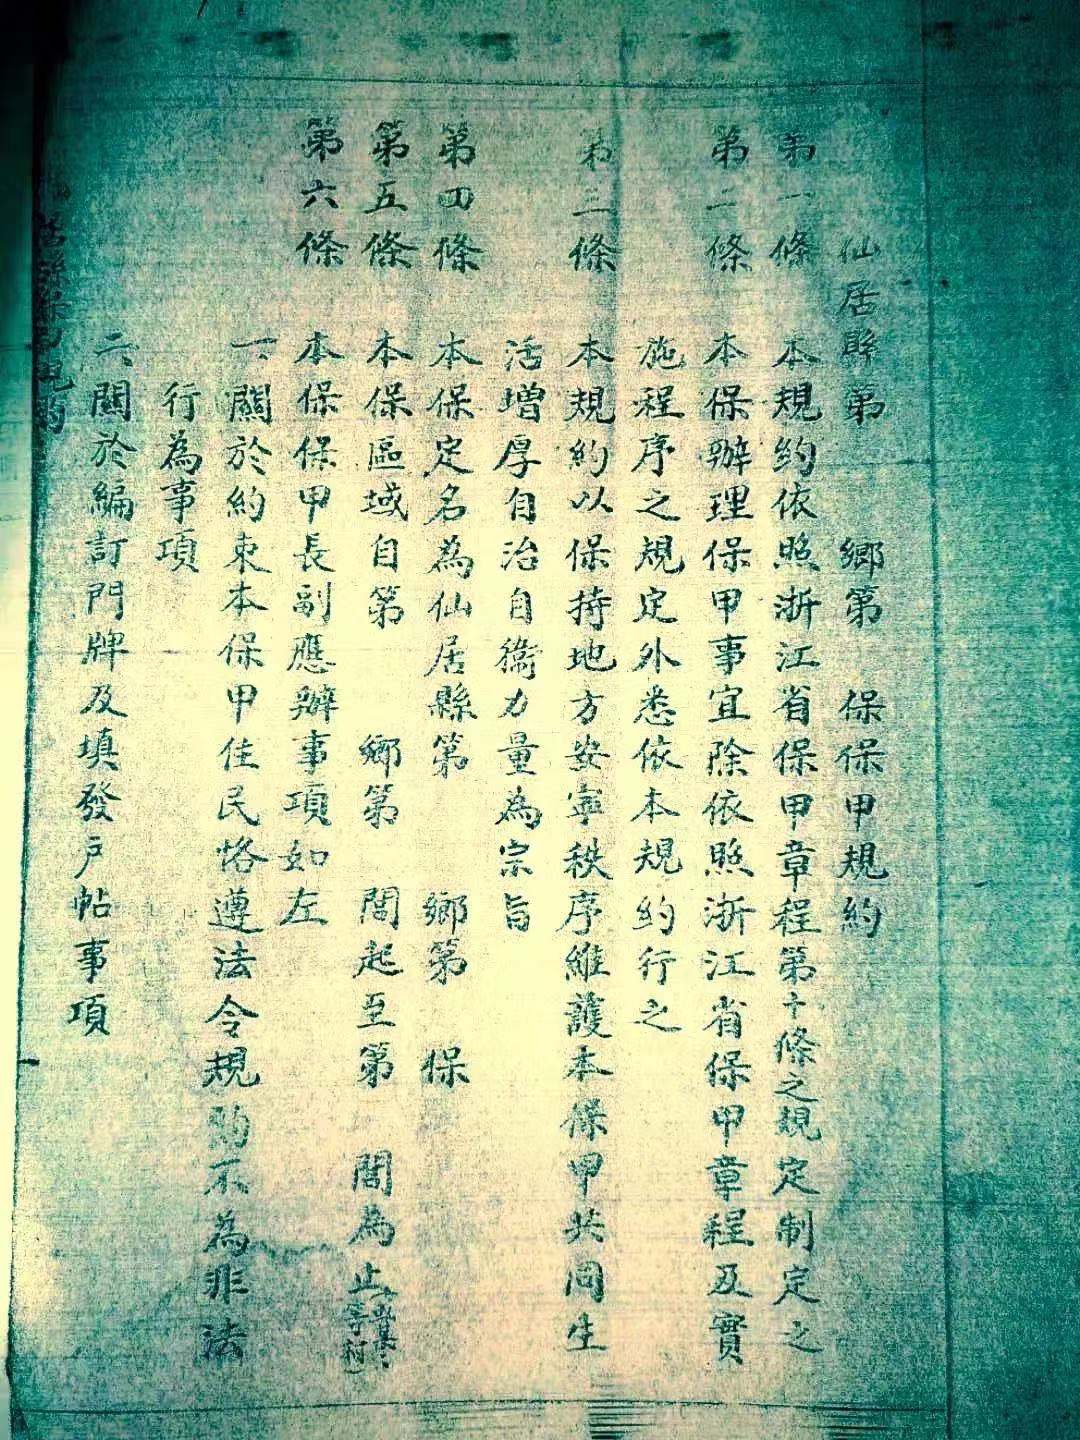 仙居縣第　鄉第　保保甲規約
第一條　本規約依照浙江省保甲章程第十條之規定制定之
第二條　本保辦理保甲事宜除依照浙江省保甲章程及實
施程序之規定外悉依本規約行之
第三條　本規約以保持地方安寧秩序維護本保甲共同生
活增厚自治自衞力量為宗旨
第四條　本保定名為仙居縣第　鄉第　保
第五條　本保區域自第　鄉第　閭起至第　閭為止
等村）
第六條　本保保甲長副應辦事項如左
一、關於約束本保甲住民恪遵法令規約不為非法
行為事項
二、關於編訂門牌及填發戶帖事項
居縣保甲規約